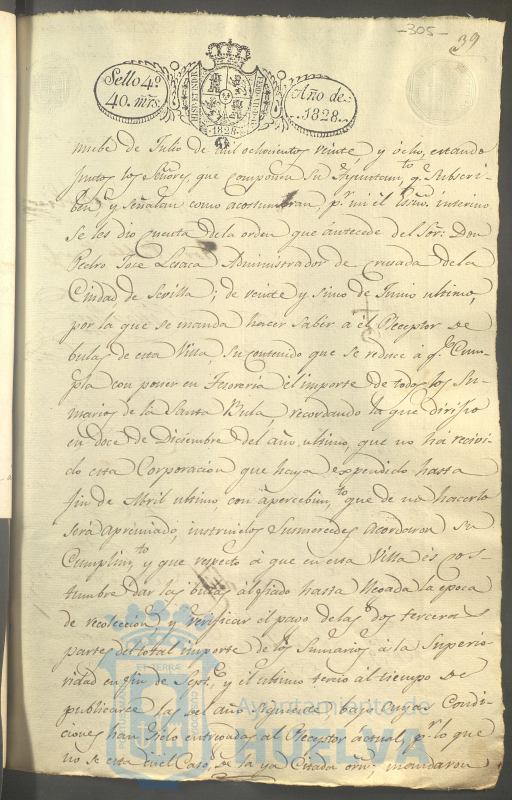 -305-
39
Sello 4º
40. mrs.
HISP. ET IND. R.
1828
Año de
1828.
nuebe de Julio de mil ochocientos veinte y ocho, estando
juntos los Señores que componen su Ayuntamto. q.e Subscri-
ben y Señalan como acostumbran, p.r mi el Essno. interino
se les dio cuenta de la orden que antecede del Sor. Don
Pedro Jose Lesaca Administrador de Crusada de la
Ciudad de Sevilla, de veinte y sinco de Junio ultimo,
por la que se manda hacer saber a el Receptor de
bulas de esta Villa, su contenido que se reduce á q.e Cum-
pla con poner en Tesoreria el importe de todos los Su-
marios de la Santa Bula, recordando la que dirijio
en doce de Diciembre del año ultimo, que no ha recivi-
do esta Corporacion que haya expendido hasta
fin de Abril ultimo, con apercebim.to que de no hacerlo
será apremiado, instruidos Susmercedes acordaron su
Cumplim.to y que respecto á que en esta Villa es cos-
tumbre dar las bulas al fiado hasta llegada la epoca
de recoleccion y verificar el pago de las dos terceras
partes del total importe de los Sumarios á la Superio-
ridad en fin de Sept.e, y el ultimo tercio al tiempo de
publicarse las del año siguiente, bajo cuyas Condi-
ciones han sido entregadas al Receptor actual, p.r lo que
no se está en el Caso de la ya Citada orn., mandaron
Ayuntamiento de
HUELVA